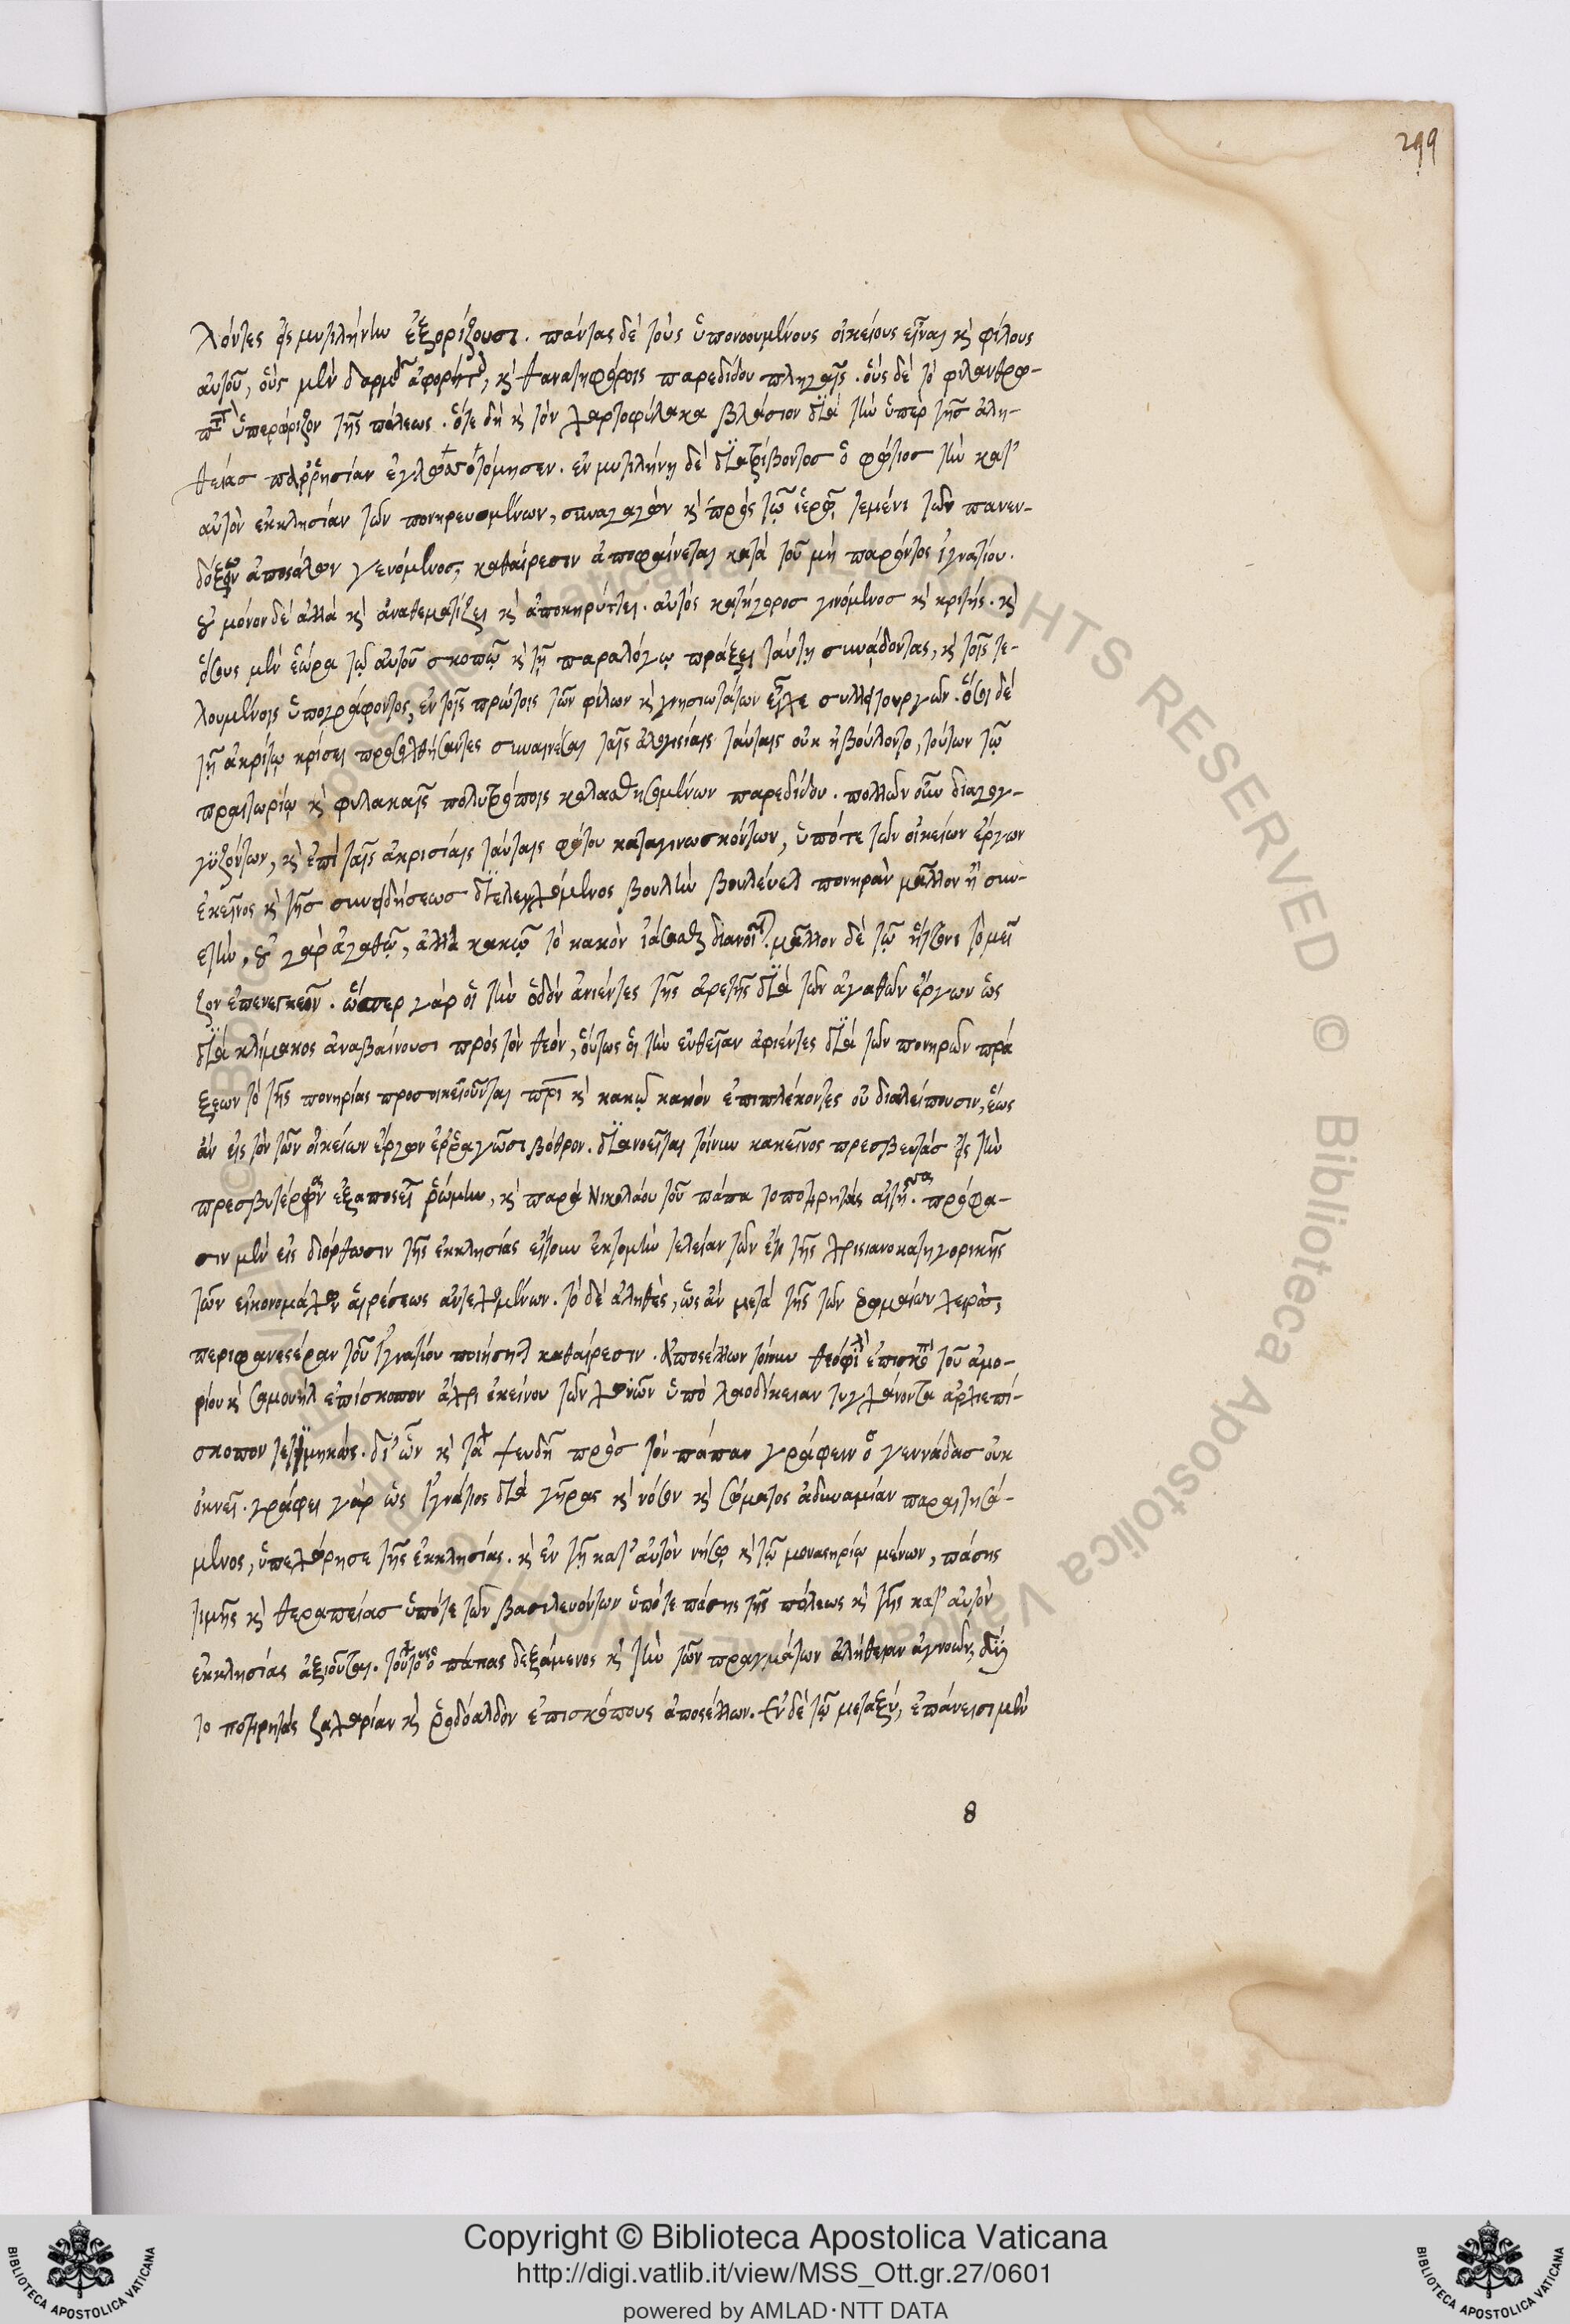 299
λόντες εἰς μυτιλήνην ἐξορίζουσι. πάντας δὲ τοὺς ὑπονοουμένους οἰκείους εἶναι κὶ φίλους
αὐτοῦ, οὓς μὲν δαρμοῖς ἀφορήτοις, κὶ θανατηφόροις παρεδίδου πληγαῖς. οὓς δὲ τὸ φιλανθρω-
ὑπερόριζον τῆς πόλεως. ὅτε δὴ κὶ τὸν χαρτοφύλακα βλάσιον διὰ τὴν ὑπὲρ τῆς ἀλη-
θείας παρρησίαν ἐγλωττοτόμησεν. ἐν μυτιλήνῃ δὲ διατρίβοντος ὁ φώτιος τὴν κατ'
αὐτὸν ἐκκλησίαν τῶν πονηρευομένων, συναγαγὼν κὶ πρὸς τῷ ἱερῷ τεμένει τῶν πανεν-
δόξων ἀποστόλων γενόμενος, καθαίρεσιν ἀποφαίνεται κατὰ τοῦ μὴ παρόντος ἰγνατίου.
οὐ μόνον δὲ ἀλλὰ κὶ ἀναθεματίζει κὶ ἀποκηρύττει. αὐτὸς κατήγορος γινόμενος κὶ κριτής. κὶ
ὅσους μὲν ἑώρα τῷ αὐτοῦ σκοπῷ κὶ τῇ παραλόγῳ πράξει ταύτῃ συνάδοντας, κὶ τοῖς τε-
λουμένοις ὑπογράφοντας, ἐν τοῖς πρώτοις τῶν φίλων κὶ γνησιωτάτων εἶχε συλλειτουργῶν. ὅσοι δὲ
τῇ ἀκρίτῳ κρίσει προσελθήσαντες συναινέσαι ταῖς ἀλογισίαις ταύταις οὐκ ἠβούλοντο, τούτων τῷ
πραιτωρίῳ κὶ φυλακαῖς πολυτρόποις κολασθησομένων παρεδίδου. πολλῶν οὖν διαγογ-
γυζόντων, κὶ ἐπὶ ταῖς ἀκρισίαις ταύταις φώτου καταγινωσκόντων, ὑπό τε τῶν οἰκείων ἔργων
ἐκεῖνος κὶ τῆς συνειδήσεως διελεγχόμενος βουλὴν βουλεύεται πονηρὰν μᾶλλον ἢ συν-
ετήν, οὐ γὰρ ἀγαθῷ, ἀλλὰ κακῷ τὸ κακὸν ἰάσασθαι διανοεῖται. μᾶλλον δὲ τῷ ἥττονι τὸ μεῖ
ζον ἐπενεγκεῖν. ὥσπερ γὰρ οἱ τὴν ὁδὸν ἀνιέντες τῆς ἀρετῆς διὰ τῶν ἀγαθῶν ἔργων ὡς
διὰ κλίμακος ἀναβαίνουσι πρὸς τὸν θεόν, οὕτως οἱ τὴν εὐθεῖαν ἀφιέντες διὰ τῶν πονηρῶν πρά
ξεων τὸ τῆς πονηρίας προσοικειοῦνται πρὶ κὶ κακῷ κακὸν ἐπιπλέκοντες οὐ διαλείπουσιν, ἕως
ἂν εἰς τὸν τῶν οἰκείων ἔργων ἐρραγῶσι βόθρον. διανοεῖται τοίνυν κἀκεῖνος πρεσβευτὰς εἰς τὴν
πρεσβυτέραν ἐξαποστεῖ ῥώμην, κὶ παρὰ Νικολάου τοῦ πάπα τοποτηρητὰς αἰτήσοντας. πρόφα-
σιν μὲν εἰς διόρθωσιν τῆς ἐκκλησίας εἴτουν ἐκτομὴν τελείαν τῶν ἔτι τῆς χριστιανοκατηγορικῆς
τῶν εἰκονομάχων αἱρέσεως ἀντεχομένων. τὸ δὲ ἀληθὲς, ὡς ἂν μετὰ τῆς τῶν ῥωμαίων χειρὸς,
περιφανεστέραν τοῦ ἰγνατίου ποιήσηται καθαίρεσιν. ἀποστέλλων τοίνυν θεόφιλον ἐπίσκοπον τοῦ ἀμο-
ρίου κὶ σαμουὴλ ἐπίσκοπον ἄχρι ἐκείνου τῶν χωνῶν ὑπὸ λαοδίκειαν τυγχάνοντα ἀρχιεπί-
σκοπον τετιμηκώς. δι' ὧν κὶ τὰ ψευδῆ πρὸς τὸν πάπαν γράφειν ὁ γεννάδας οὐκ
ὀκνεῖ. γράφει γὰρ ὡς ἰγνάτιος διὰ γῆρας κὶ νόσον κὶ σώματος ἀδυναμίαν παραιτησά-
μενος, ὑπεχώρησε τῆς ἐκκλησίας. κὶ ἐν τῇ κατ' αὐτὸν νήσῳ κὶ τῷ μοναστηρίῳ μένων, πάσης
τιμῆς κὶ θεραπείας ὑπό τε τῶν βασιλευόντων ὑπό τε πάσης τῆς πόλεως κὶ τῆς κατ' αὐτὸν
ἐκκλησίας ἀξιοῦται. τούτους ὁ πάπας δεξάμενος κὶ τὴν τῶν πραγμάτων ἀλήθειαν ἀγνοῶν,
τοποτηρητὰς ζαχαρίαν κὶ ῥοδόαλδον ἐπισκόπους ἀποστέλλων. ἐν δὲ τῷ μεταξὺ, ἐπάνεισι μὲν
8
Copyright © Biblioteca Apostolica Vaticana
http://digi.vatlib.it/view/MSS_Ott.gr.27/0601
powered by AMLAD·NTT DATA